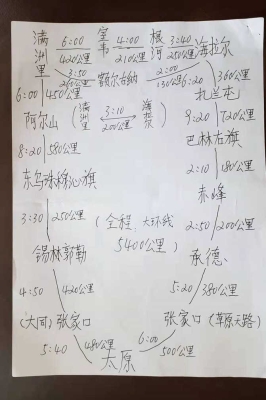 满洲里 6:00 420公里 室韦 4:00 210公里 根河 3:40 250公里 海拉尔
3:50 260公里 额尔古纳 2:00 130公里
6:00 450公里 6:20 360公里
阿尔山 (满洲里 3:10 200公里 海拉尔) 扎兰屯
8:20 580公里 9:20 720公里
东乌珠穆沁旗 巴林右旗
2:10 180公里
赤峰
3:30 250公里 (全程,大环线 2:50 200公里
5400公里)
锡林郭勒 承德
4:50 420公里 5:20 380公里
(大同)张家口 张家口(草原天路)
5:40 480公里 太原 6:00 500公里